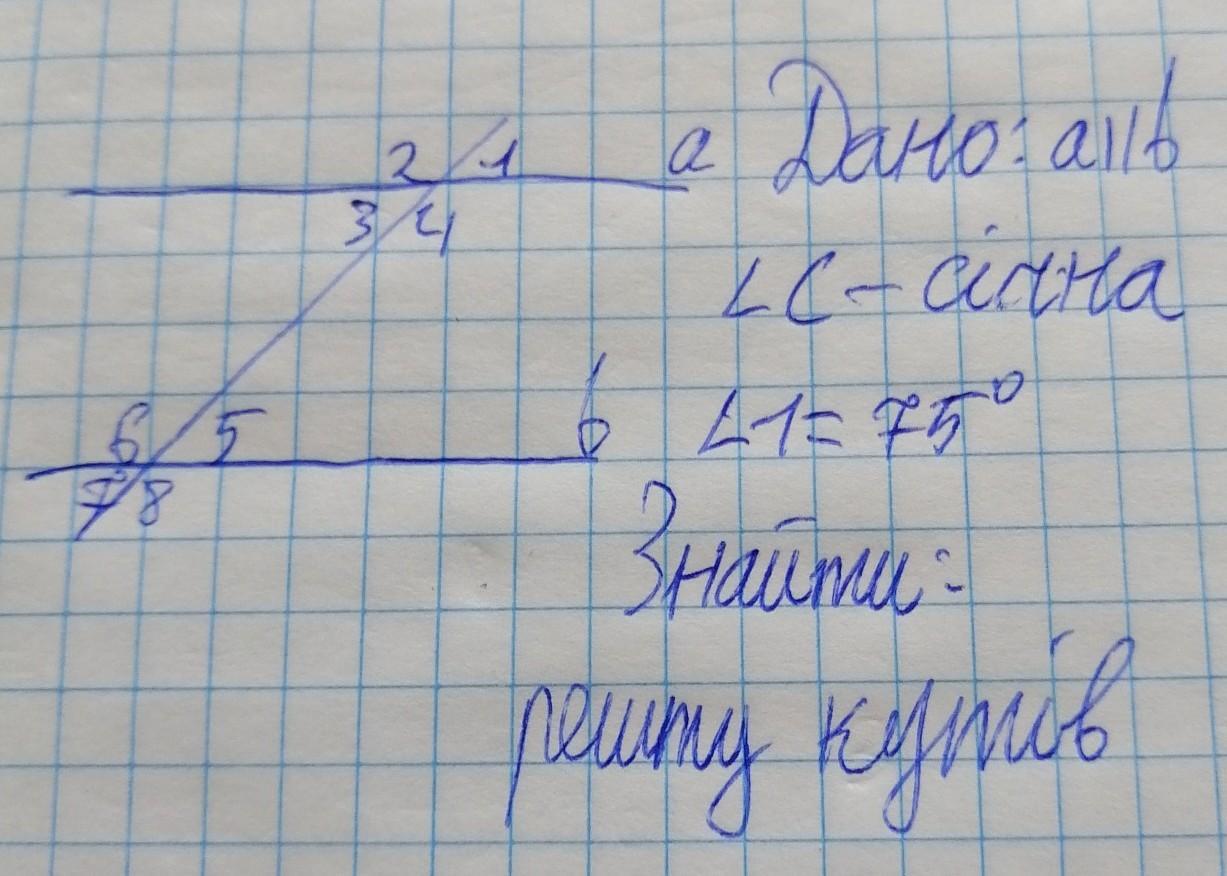 2 1 a Дано: a||b
3 4
∠C - січна
6 5 b ∠1= 75°
7 8
Знайти:
решту кутів